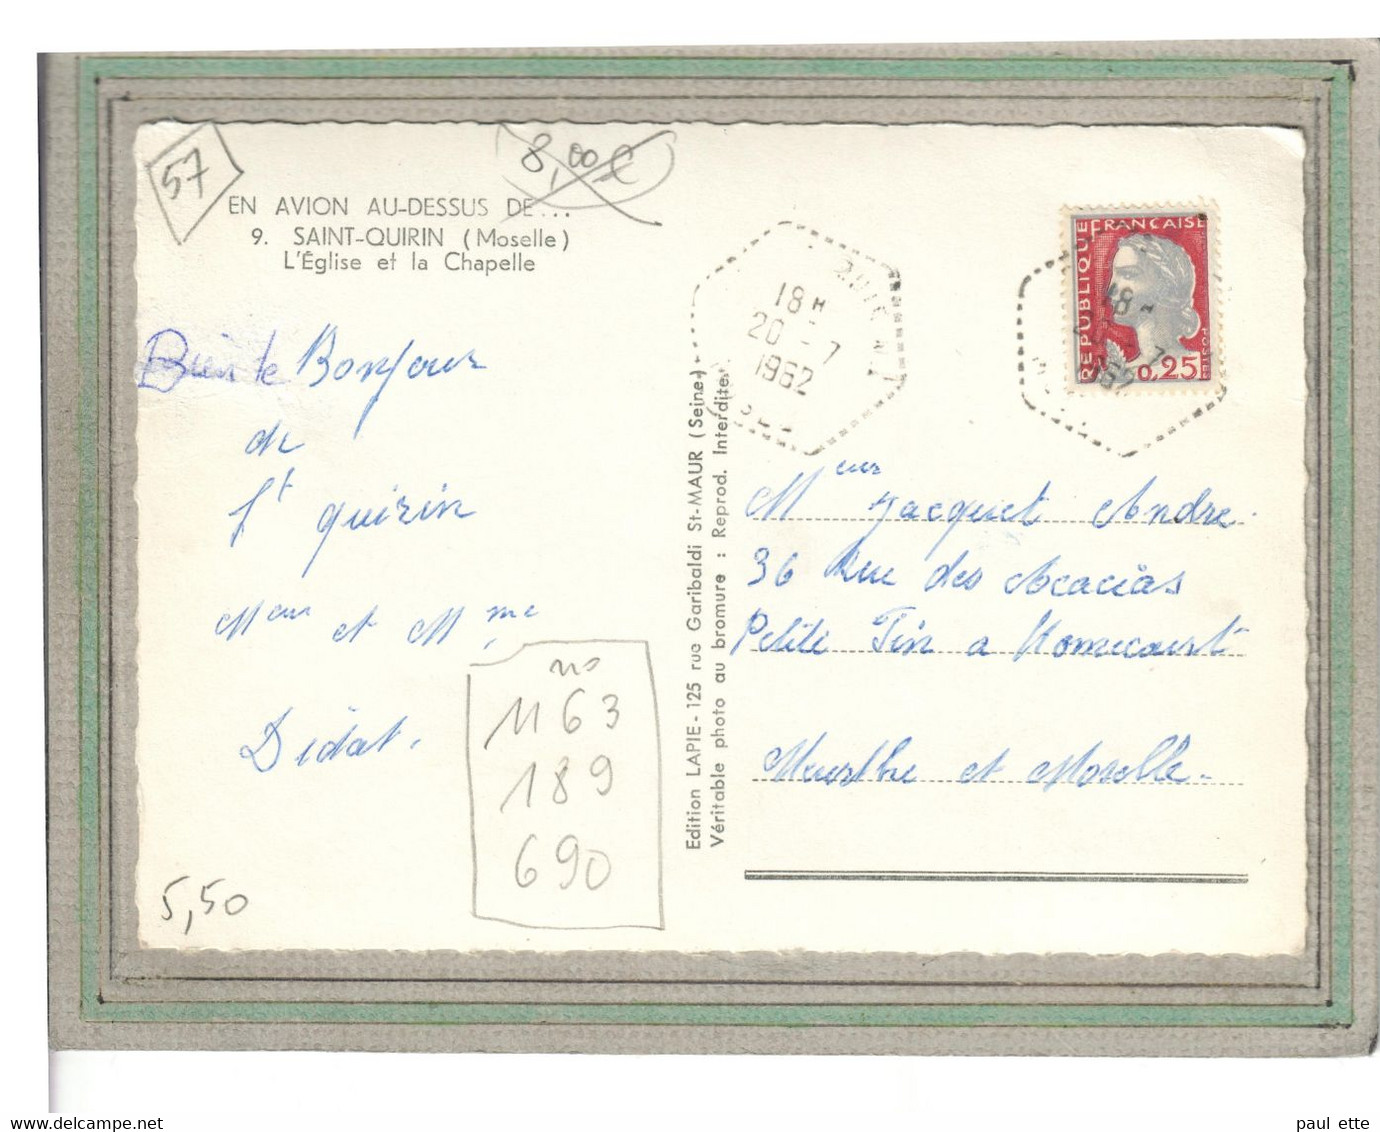 57
8,00€
EN AVION AU-DESSUS DE...
9. SAINT-QUIRIN (Moselle)
L'Église et la Chapelle
Bien le Bonjour
de
St quirin
Meur et Mme
Didat.
no
1163
189
690
5,50
Edition LAPIE - 125 rue Garibaldi St-MAUR (Seine)
Véritable photo au bromure : Reprod. Interdite
18 H
20 - 7
1962
RÉPUBLIQUE FRANÇAISE
POSTES
0,25
18 H
7
1962
Meur Jacquet Andre.
36 Rue des Acacias
Petite Fin a Homecourt
Meurthe et Moselle.
paul ette